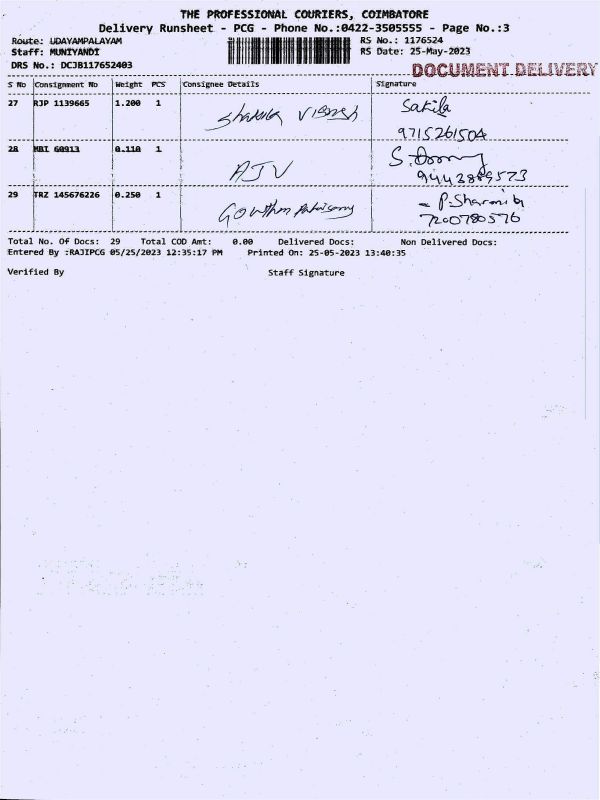 THE PROFESSIONAL COURIERS, COIMBATORE
Delivery Runsheet - PCG - Phone No.:0422-3505555 - Page No.:3
Route: UDAYAMPALAYAM RS No.: 1176524
Staff: MUNIYANDI RS Date: 25-May-2023
DRS No.: DCJB117652403
DOCUMENT DELIVERY
S No Consignment No Weight PCS Consignee Details Signature
27 RJP 1139665 1.200 1 Shakila Sakila
9715261504
28 MBI 60913 0.110 1 AJV S.
9442889573
29 TRZ 145676226 0.250 1 Gowthm P. Sharmi
7200780576
Total No. Of Docs: 29 Total COD Amt: 0.00 Delivered Docs: Non Delivered Docs:
Entered By :RAJIPCG 05/25/2023 12:35:17 PM Printed On: 25-05-2023 13:40:35
Verified By Staff Signature